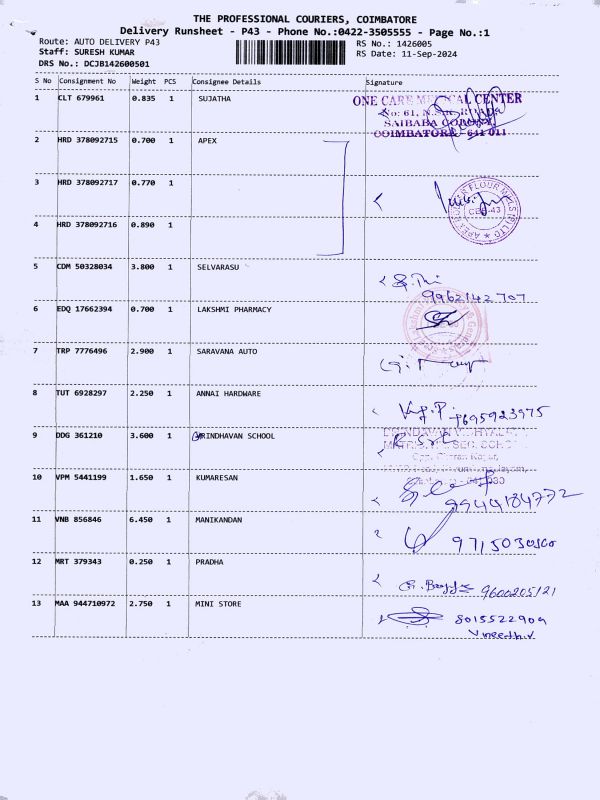 THE PROFESSIONAL COURIERS, COIMBATORE
Delivery Runsheet - P43 - Phone No.:0422-3505555 - Page No.:1
Route: AUTO DELIVERY P43
Staff: SURESH KUMAR
DRS No.: DCJB142600501
RS No.: 1426005
RS Date: 11-Sep-2024
S No Consignment No Weight PCS Consignee Details Signature
1 CLT 679961 0.835 1 SUJATHA
ONE CARE MEDICAL CENTER
No: 61, N.S.R. ROAD
SAIBABA COLONY
COIMBATORE - 641 011
2 HRD 378092715 0.700 1 APEX
3 HRD 378092717 0.770 1
4 HRD 378092716 0.890 1
5 CDM 50328034 3.800 1 SELVARASU
9962142707
6 EDQ 17662394 0.700 1 LAKSHMI PHARMACY
7 TRP 7776496 2.900 1 SARAVANA AUTO
8 TUT 6928297 2.250 1 ANNAI HARDWARE
9 DDG 361210 3.600 1 BRINDHAVAN SCHOOL
10 VPM 5441199 1.650 1 KUMARESAN
9944184772
11 VNB 856846 6.450 1 MANIKANDAN
12 MRT 379343 0.250 1 PRADHA
9600205121
13 MAA 944710972 2.750 1 MINI STORE
8015522909